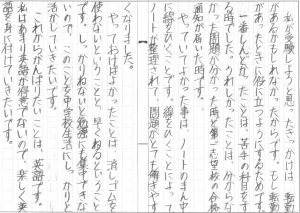 私が受験しようと思ったきっかけは、転勤
があるかもしれなかったからです。もし転勤
があったときに役に立つようにするためです。
一番しんどかったことは、苦手の科目をす
る時でした。うれしかったことは、分からな
かった問題が分かった時と第一志望校の合格
通知が着いた時です。
やっていてよかった事は、ノートのまん中
に線をひくことです。線をひくことによって
ノートが整理されて、問題がとても解きやす
くなりました。
やっておけばよかったことは、消しゴムを
使わないということと、早くねるということ
です。しっかりねないと勉強に集中できな
いので、このことを中学校生活にしっかりと
活かしていきたいです。
これからがんばりたいことは、英語です。
私はあまり英語が得意でないので、楽しく英
語を身に付けていきたいです。